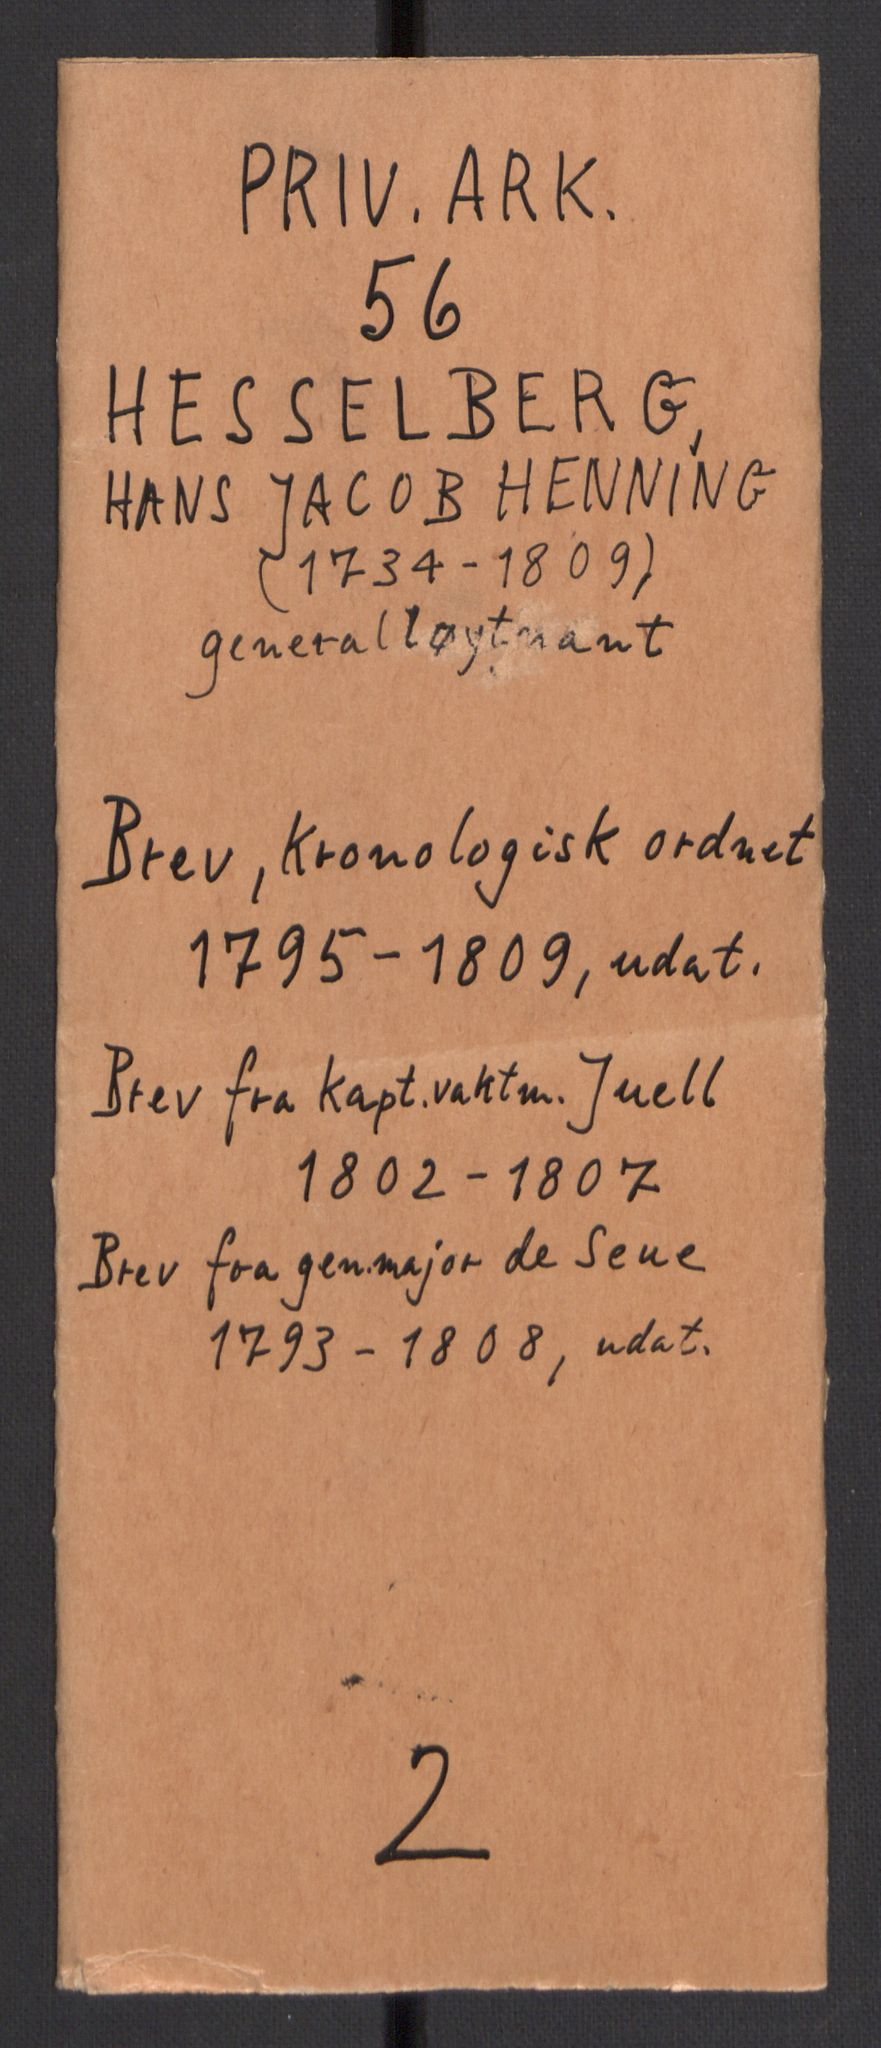 PRIV. ARK.
56
HESSELBERG,
HANS JACOB HENNING
(1734-1809)
generalløytnant
Brev, kronologisk ordnet
1795-1809, udat.
Brev fra kapt.vaktm. Juell
1802-1807
Brev fra gen.major de Seue
1793-1808, udat.
2